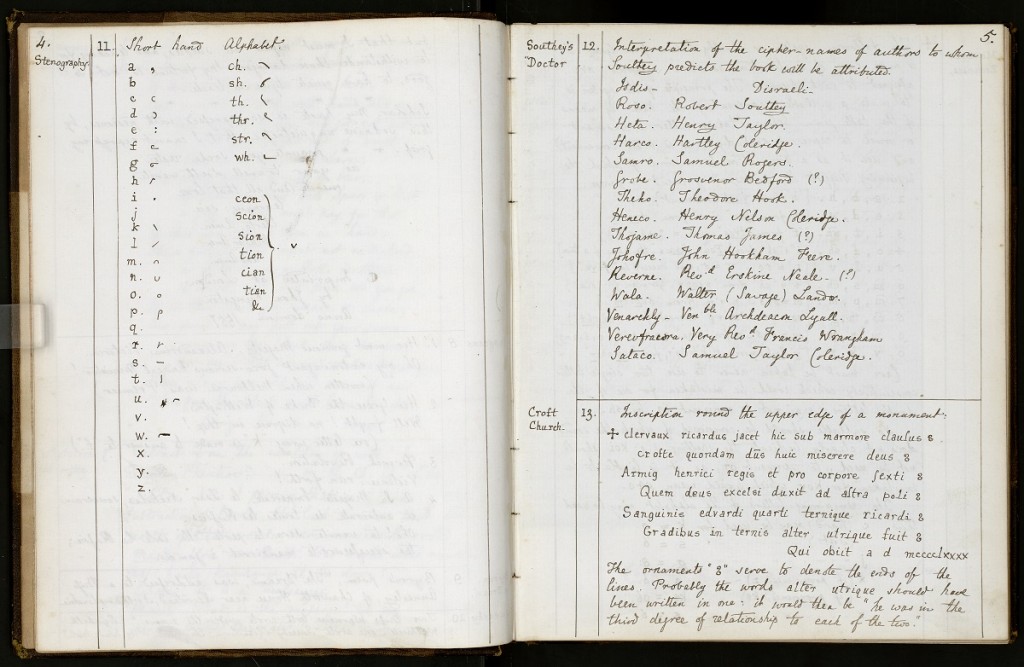 4.
Stenography.
11. Short hand Alphabet.
a ,
b
c c
d ɔ
e :
f
g
h
i .
j
k \
l /
m. ∩
n. ∪
o. o
p. ρ
q.
r. r
s. –
t. l
u.
v.
w.
x.
y.
z.
ch.
sh.
th.
thr.
str.
wh.
ceon
scion
sion
tion
cian
tian
&c
. v
5.
Southey's
"Doctor
12. Interpretation of the cipher-names of authors to whom
Southey predicts the book will be attributed.
Isdis – Disraeli –
Roso. Robert Southey
Heta. Henry Taylor.
Harco. Hartley Coleridge.
Samro. Samuel Rogers.
Grobe. Grosvenor Bedford (?)
Theho. Theodore Hook.
Heneco. Henry Nelson Coleridge.
Thojame. Thomas James (?)
Johofre. John Hookham Frere.
Reverne. Revd Erskine Neale. (?)
Wala. Walter (Savage) Landor.
Venarchly – Venble Archdeacon Lyall.
Verevfrawra. Very Revd Francis Wrangham
Sataco. Samuel Taylor Coleridge.
Croft
Church.
13. Inscription round the upper edge of a monument.
+ clervaux ricardus jacet hic sub marmore clausus 8
crofte quondam dūs huic miserere deus 8
Armig henrici regis et pro corpore sexti 8
Quem deus excelsi duxit ad astra poli 8
Sanguinis edvardi quarti ternique ricardi 8
Gradibus in ternis alter utrique fuit 8
Qui obiit a d mcccclxxxx
The ornaments "8" serve to denote the ends of the
lines. Probably the words alter utrique should have
been written in one: it would then be "he was in the
third degree of relationship to each of the two."